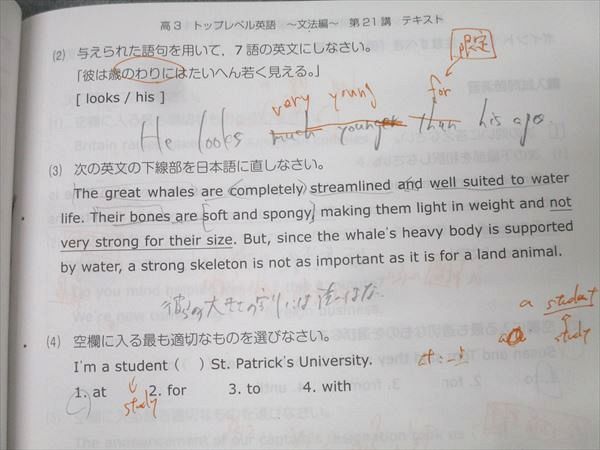 高3 トップレベル英語 ～文法編～ 第21講 テキスト
(2) 与えられた語句を用いて、7語の英文にしなさい。
限定
「彼は歳のわりにはたいへん若く見える。」
very young for
[ looks / his ]
He looks much younger than his age.
(3) 次の英文の下線部を日本語に直しなさい。
The great whales are completely streamlined and well suited to water
life. Their bones are soft and spongy, making them light in weight and not
very strong for their size. But, since the whale's heavy body is supported
by water, a strong skeleton is not as important as it is for a land animal.
a student
study
(4) 空欄に入る最も適切なものを選びなさい。
I'm a student (  ) St. Patrick's University.
1. at 2. for 3. to 4. with
study